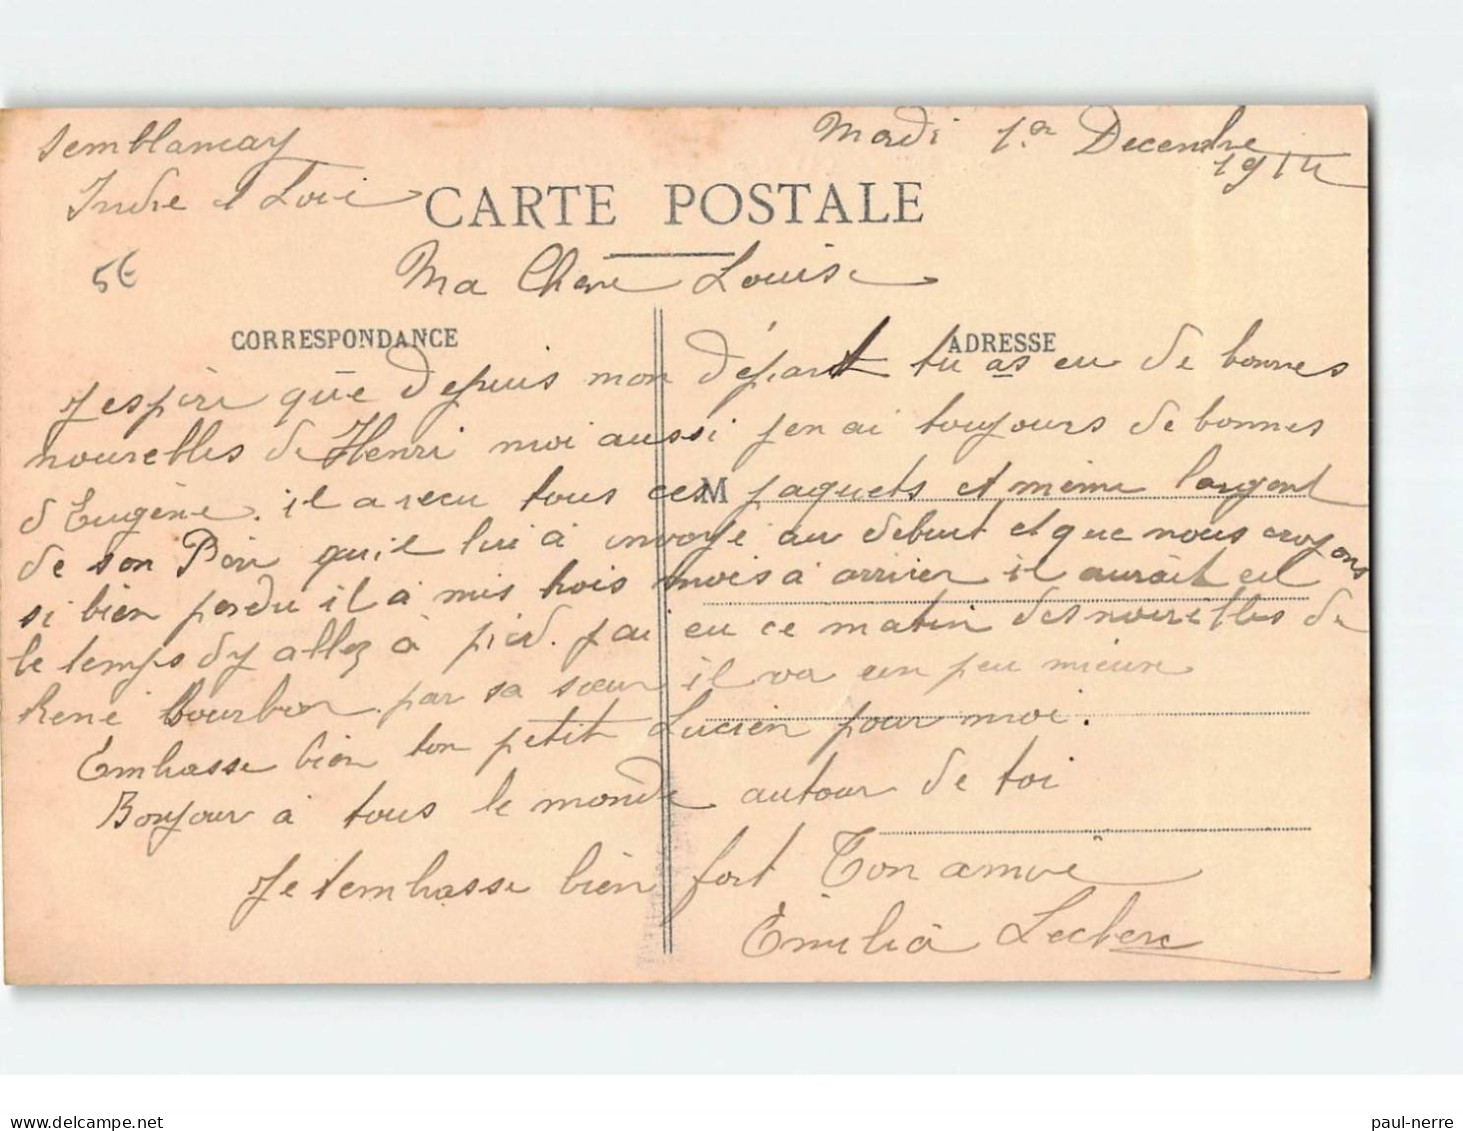 Semblancay
Indre et Loire
Mardi 1er Decembre
1914
CARTE POSTALE
5€
Ma Chere Louise
CORRESPONDANCE
ADRESSE
M
J espère que depuis mon départ tu as eu de bonnes
nouvelles de Henri moi aussi j en ai toujours de bonnes
d Eugène. il a recu tous ces paquets et même largent
de son Père qu il lui à envoyé au debut et que nous croyons
si bien perdu il à mis trois mois à arriver il aurait eu
le temps dy allez à pied. J ai eu ce matin des nouvelles de
René Bourbon par sa sœur il va un peu mieux
Embrasse bien ton petit Lucien pour moi.
Bonjour à tous le monde autour de toi
Je t embrasse bien fort Ton amie
Emilia Leclerc
delcampe.net
paul-nerre